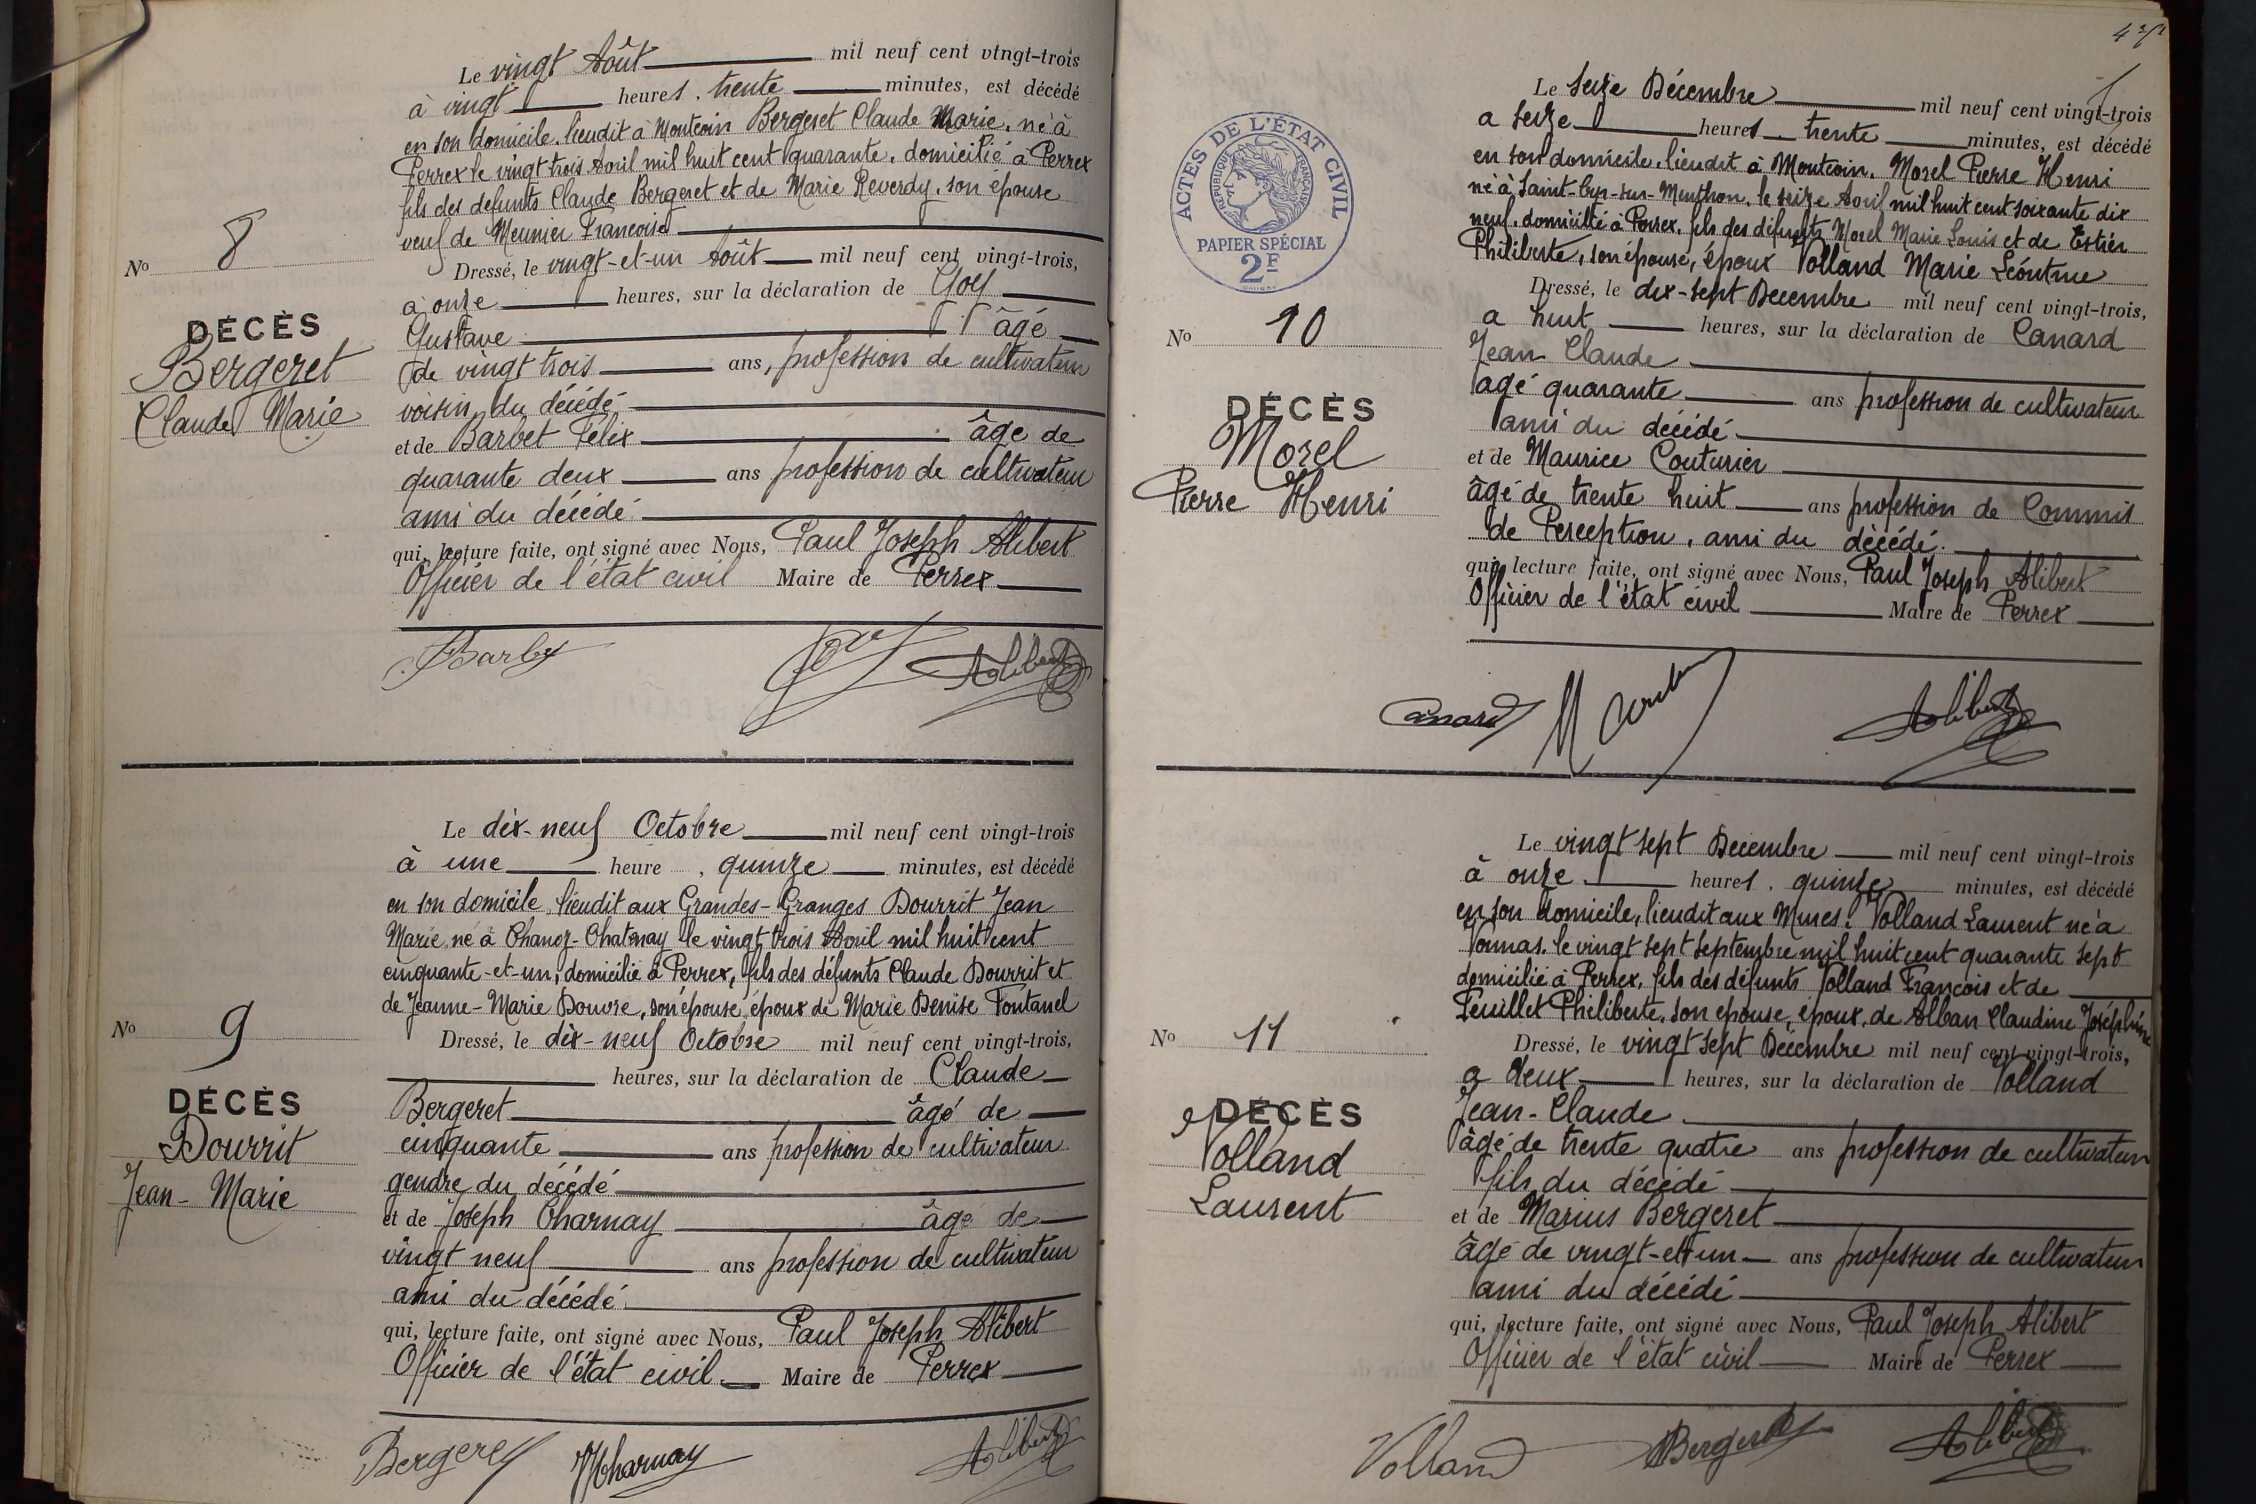 Le vingt Août mil neuf cent vingt-trois
à vingt heures. trente minutes, est décédé
en son domicile, lieudit à Montcoin Bergeret Claude Marie, né à
Perrex le vingt trois Avril mil huit cent quarante, domicilié à Perrex
fils des defunts Claude Bergeret et de Marie Reverdy, son épouse
veuf de Meunier Françoise
No 8
Dressé, le vingt-et-un Août mil neuf cent vingt-trois,
à onze heures, sur la déclaration de
DÉCÈS
Gustave âgé
Bergeret
de vingt trois ans, profession de cultivateur
Claude Marie
voisin du décédé
et de Barbet Félix âge de
quarante deux ans profession de cultivateur
ami du décédé
qui, lecture faite, ont signé avec Nous, Paul Joseph Alibert
Officier de l'état civil Maire de Perrex
Alibert
Le dix-neuf Octobre mil neuf cent vingt-trois
à une heure, quinze minutes, est décédé
en son domicile, lieudit aux Grandes-Granges Dourrit Jean
Marie, né à Chanoz-Chatenay le vingt trois Avril mil huit cent
cinquante-et-un, domicilié à Perrex, fils des défunts Claude Dourrit et
de Jeanne-Marie Douvre, son épouse, époux de Marie Denise Fontanel
No 9
Dressé, le dix-neuf Octobre mil neuf cent vingt-trois,
heures, sur la déclaration de Claude
DÉCÈS
Bergeret âgé de
Dourrit
cinquante ans profession de cultivateur
Jean-Marie
gendre du décédé
et de Joseph Charnay âgé de
vingt neuf ans profession de cultivateur
ami du décédé
qui, lecture faite, ont signé avec Nous, Paul Joseph Alibert
Officier de l'état civil Maire de Perrex
Bergeret JCharnay Alibert
ACTES DE L'ÉTAT CIVIL
RÉPUBLIQUE FRANÇAISE
PAPIER SPÉCIAL
2F
Le seize Décembre mil neuf cent vingt-trois
a seize heures. trente minutes, est décédé
en son domicile, lieudit à Montcoin, Morel Pierre Henri
né à Saint-Cyr-sur-Menthon, le seize Avril mil huit cent soixante dix
neuf, domicilié à Perrex, fils des défunts Morel Marie Louis et de Estier
Philiberte, son épouse, époux Volland Marie Léontine
Dressé, le dix-sept Decembre mil neuf cent vingt-trois,
No 10
a huit heures, sur la déclaration de Canard
Jean Claude
DÉCÈS
agé quarante ans profession de cultivateur
Morel
ami du décédé
et de Maurice Couturier
Pierre Henri
âgé de trente huit ans profession de Commis
de Perception, ami du décédé.
qui, lecture faite, ont signé avec Nous, Paul Joseph Alibert
Officier de l'état civil Maire de Perrex
Canard Alibert
Le vingt sept Decembre mil neuf cent vingt-trois
à onze heures. quinze minutes, est décédé
en son domicile, lieudit aux Mures, Volland Laurent né à
Vonnas, le vingt sept septembre mil huit cent quarante sept
domicilié à Perrex, fils des défunts Volland François et de
Feuillet Philiberte, son epouse, époux, de Alban Claudine Joséphine
No 11
Dressé, le vingt sept Décembre mil neuf cent vingt-trois,
a deux heures, sur la déclaration de Volland
DÉCÈS
Jean-Claude
Volland
âgé de trente quatre ans profession de cultivateur
Laurent
fils du décédé
et de Marius Bergeret
âgé de vingt-et-un ans profession de cultivateur
ami du décédé
qui, lecture faite, ont signé avec Nous, Paul Joseph Alibert
Officier de l'état civil Maire de Perrex
Volland Bergeret Alibert